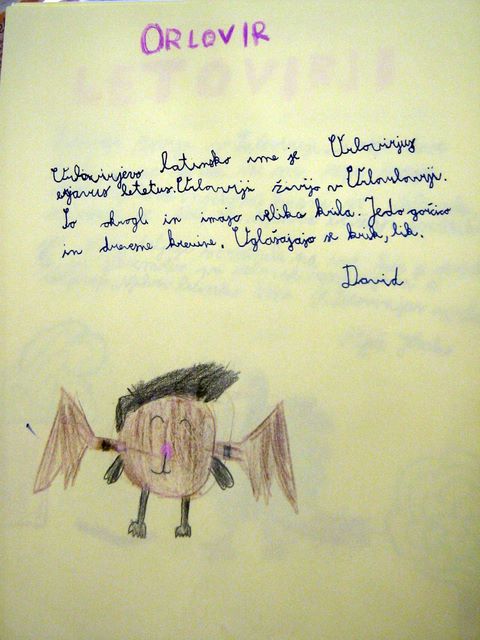 ORLOVIR
Urlovirjevo latinsko ime je Urlovirjus
letetus. Urlovirji živijo v Urlovloviji.
So okrogli in imajo velika krila. Jedo gorčico
in drevesne krevine. Uglašajajo se krik, lik.
David